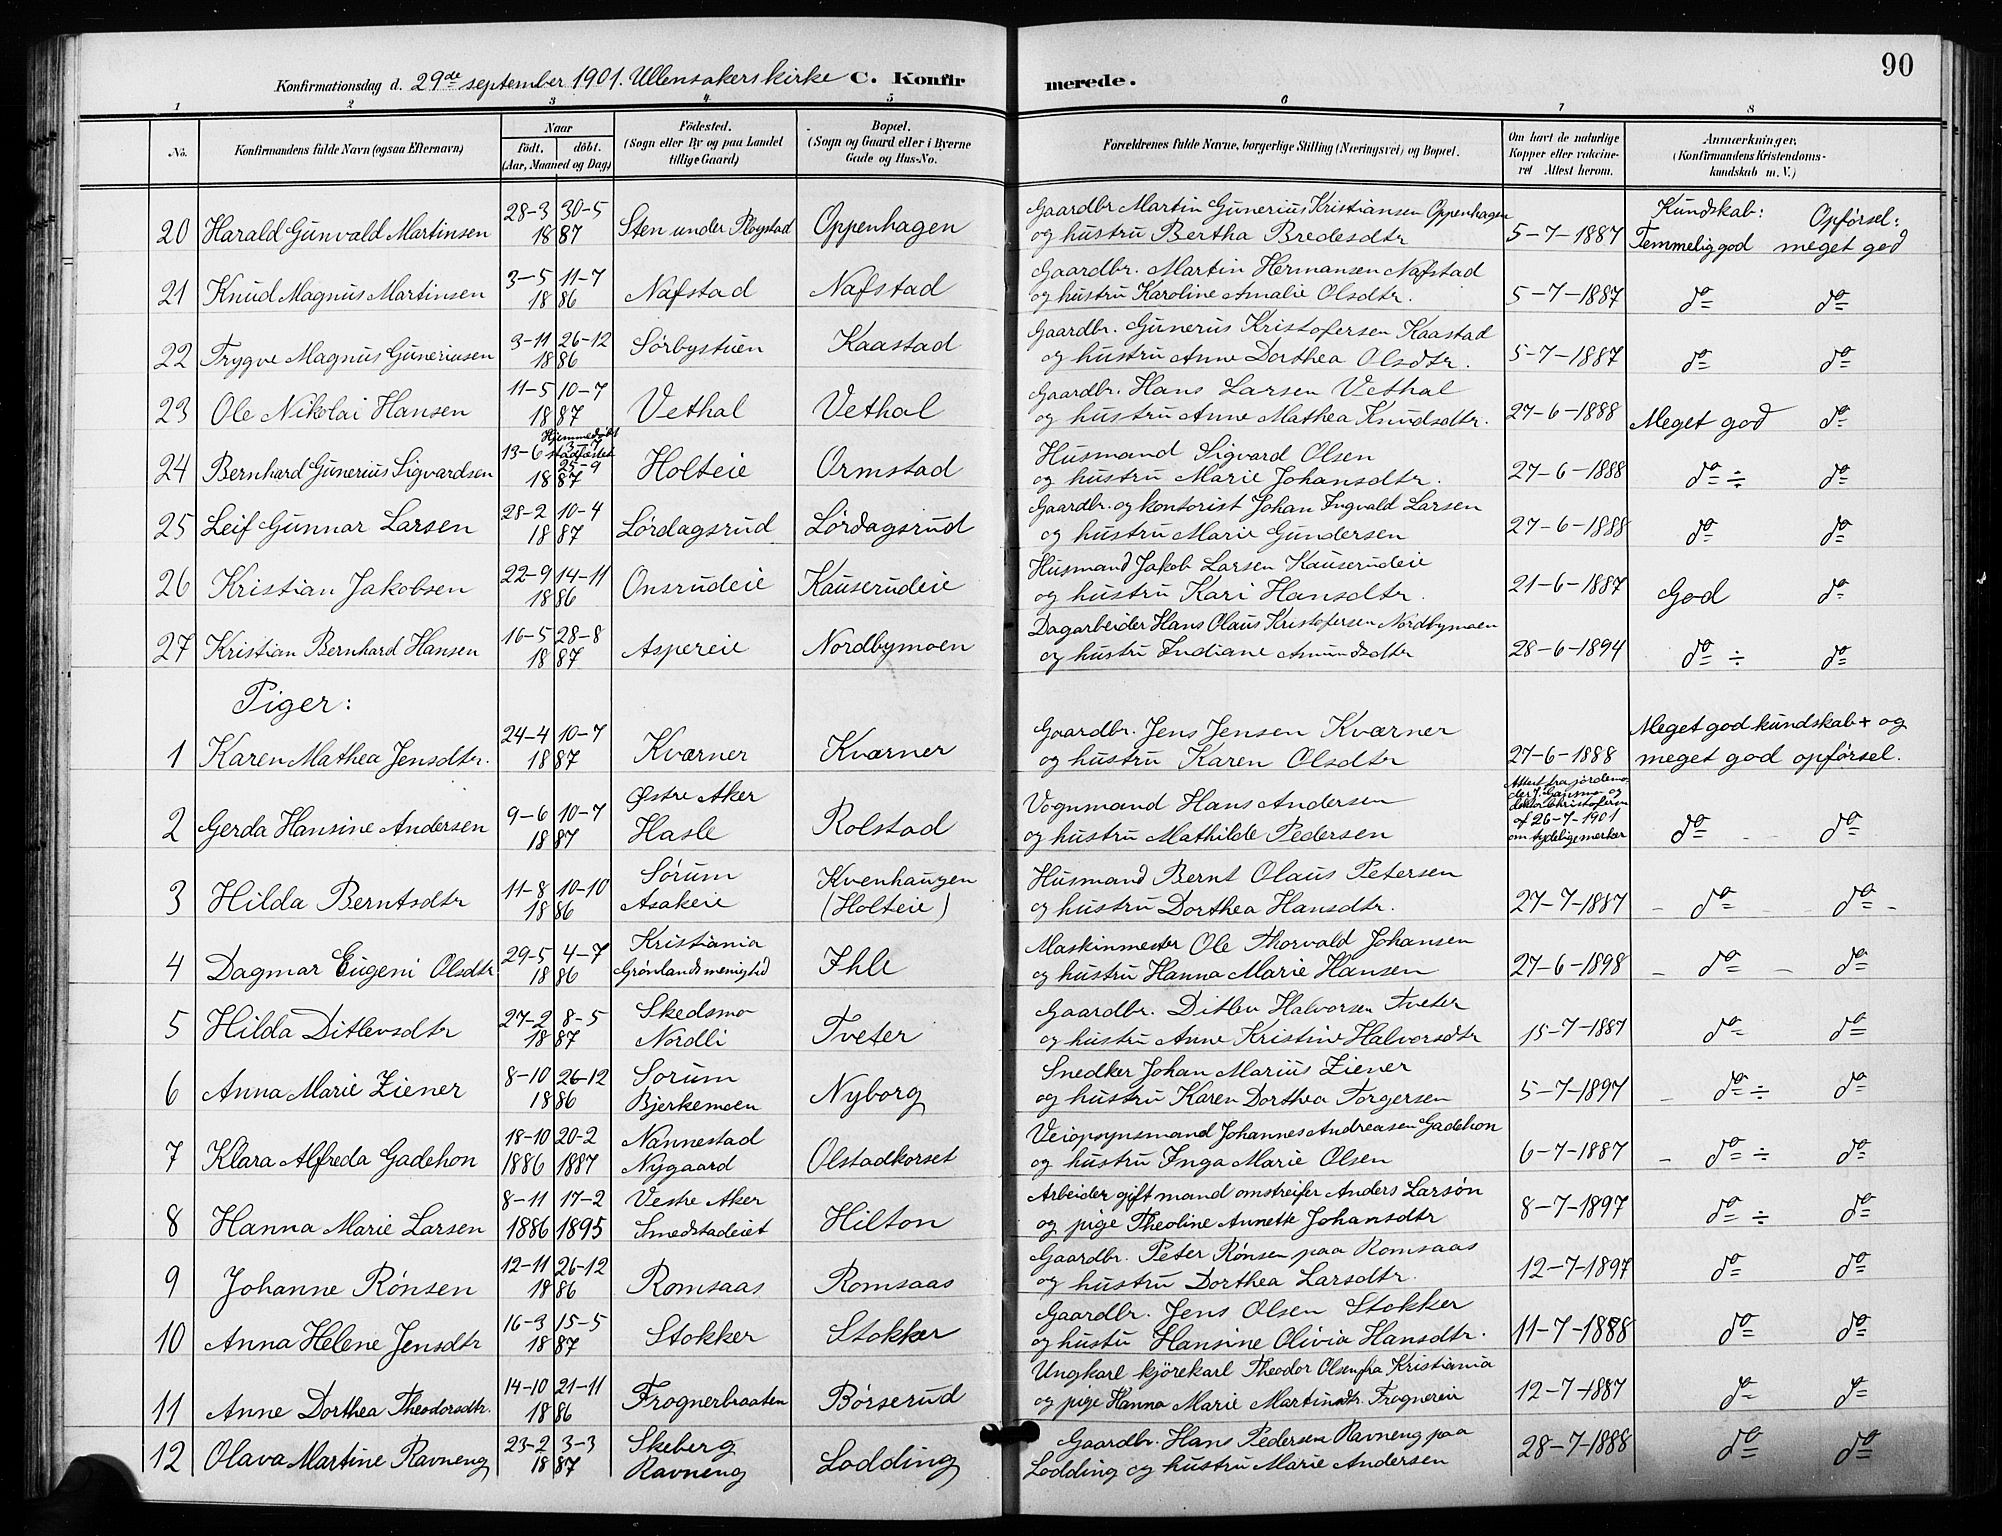 90
Konfirmationsdag d. 29de september 1901. Ullensakers kirke C. Konfirmerede.
1 2 3 4 5 6 7 8
No. Konfirmandens fulde Navn (ogsaa Efternavn) Naar födt. döbt. (Aar, Maaned og Dag) Födested. (Sogn eller By og paa Landet tillige Gaard) Bopæl. (Sogn og Gaard eller i Byerne Gade og Hus-No. Forældrenes fulde Navne, borgerlige Stilling (Næringsvei) og Bopæl. Om havt de naturlige Kopper eller vakcineret Attest herom. Anmærkninger. (Konfirmandens Kristendomskundskab m. V.)
Kundskab: Opførsel:
20 Harald Gunvald Martinsen 28-3 30-5 1887 Sten under Plogstad Oppenhagen Gaardbr Martin Gunerius Kristiansen Oppenhagen
og hustru Bertha Bredesdtr 5-7-1887 Temmelig god meget god
21 Knud Magnus Martinsen 3-5 11-7 1886 Nafstad Nafstad Gaardbr. Martin Hermansen Nafstad
og hustru Karoline Amalie Olsdtr. 5-7-1887 do do
22 Trygve Magnus Guneriusen 3-11 26-12 1886 Sørbystuen Kaastad Gaardbr. Gunerus Kristofersen Kaastad
og hustru Anne Dorthea Olsdtr. 5-7-1887 do do
23 Ole Nikolai Hansen 11-5 10-7 1887 Vethal Vethal Gaardbr. Hans Larsen Vethal
og hustru Anne Mathea Knudsdtr. 27-6-1888 Meget god do
24 Bernhard Gunerius Sigvardsen 13-6 Hjemmedøbt 3-7 stadfæstet 25-9 1887 Holteie Ormstad Husmand Sigvard Olsen
og hustru Marie Johansdtr. 27-6-1888 do ÷ do
25 Leif Gunnar Larsen 28-2 10-4 1887 Lördagsrud Lördagsrud Gaardbr. og kontorist Johan Ingvald Larsen
og hustru Marie Gundersen 27-6-1888 do do
26 Kristian Jakobsen 22-9 14-11 1886 Onsrudeie Kauserudeie Husmand Jakob Larsen Kauserudeie
og hustru Kari Hansdtr. 21-6-1887 God do
27 Kristian Bernhard Hansen 16-5 28-8 1887 Aspereie Nordbymoen Dagarbeider Hans Olaus Kristofersen Nordbymoen
og hustru Indiane Amundsdtr 28-6-1894 do ÷ do
Piger:
1 Karen Mathea Jensdtr. 24-4 10-7 1887 Kværner Kværner Gaardbr. Jens Jensen Kværner
og hustru Karen Olsdtr 27-6-1888 Meget god kundskab + og
meget god opførsel.
2 Gerda Hansine Andersen 9-6 10-7 1887 Østre Aker Hasle Rolstad Vognmand Hans Andersen
og hustru Mathilde Pedersen Attest fra jordemoder J. Gansmo og doktor Christofersen af 26-7-1901 om tydelige merker do do
3 Hilda Berntsdtr 11-8 10-10 1886 Sørum Asakeie Kvenhaugen (Holteie) Husmand Bernt Olaus Petersen
og hustru Dorthea Hansdtr. 27-7-1887 do do
4 Dagmar Eugeni Olsdtr 29-5 4-7 1886 Kristiania Grönlands menighed Ihle Maskinmester Ole Thorvald Johansen
og hustru Hanna Marie Hansen 27-6-1898 do do
5 Hilda Ditlevsdtr 27-2 8-5 1887 Skedsmo Nordli Tveter Gaardbr. Ditlev Halvorsen Tveter
og hustru Anne Kristine Halvorsdtr 15-7-1887 do do
6 Anna Marie Ziener 8-10 26-12 1886 Sorum Bjerkemoen Nyborg Snedker Johan Marius Ziener
og hustru Karen Dorthea Torgersen 5-7-1897 do ÷ do
7 Klara Alfreda Gadehon 18-10 20-2 1886 1887 Nannestad Nygaard Olstadkorset Veiopsynsmand Johannes Andreasen Gadehon
og hustru Inga Marie Olsen 6-7-1887 do ÷ do
8 Hanna Marie Larsen 8-11 17-2 1886 1895 Vestre Aker Smedstadeiet Hilton Arbeider gift mand omstreifer Anders Larsøn
og pige Theoline Annette Johansdtr 8-7-1897 do ÷ do
9 Johanne Rønsen 12-11 26-12 1886 Romsaas Romsaas Gaardbr. Peter Rønsen paa Romsaas
og hustru Dorthea Larsdtr. 12-7-1897 do do
10 Anna Helene Jensdtr 16-3 15-5 1887 Stokker Stokker Gaardbr. Jens Olsen Stokker
og hustu Hansine Olivia Hansdtr. 11-7-1888 do do
11 Anne Dorthea Theodorsdtr. 14-10 21-11 1886 Frognerbraaten Børserud Ungkarl kjörekarl Theodor Olsen fra Kristiania
og pige Hanna Marie Martinsdtr. Frognereie 12-7-1887 do do
12 Olava Martine Ravneng 23-2 3-3 1887 Skeberg Ravneng Lodding Gaardbr. Hans Pedersen Ravneng paa
Lodding og hustru Marie Andersen 28-7-1888 do do